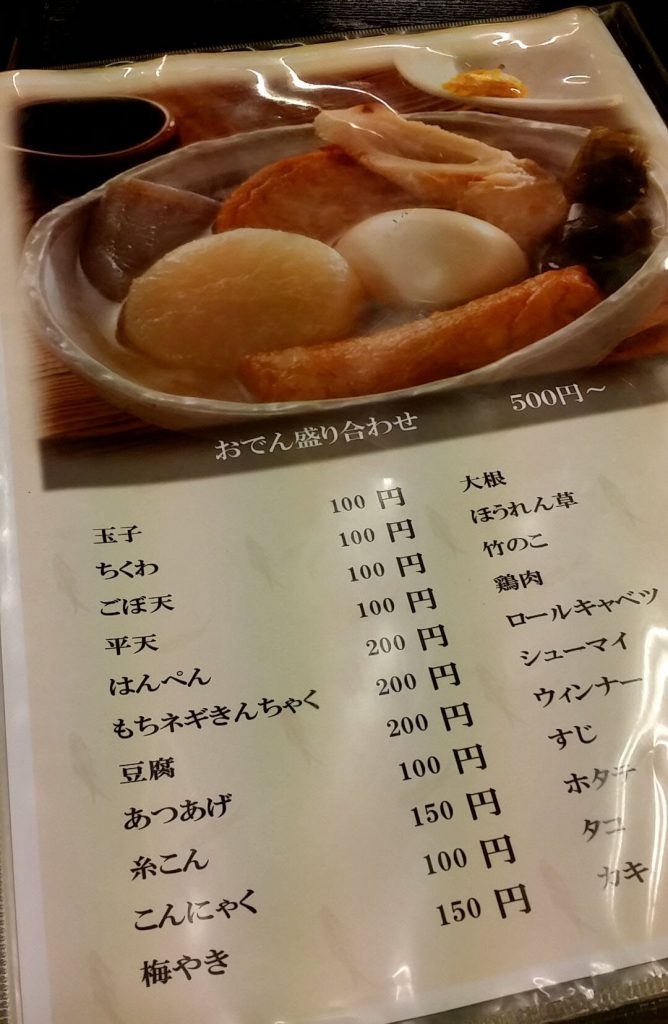 おでん盛り合わせ 500円～
玉子 100 円
ちくわ 100 円
ごぼ天 100 円
平天 100 円
はんぺん 200 円
もちネギきんちゃく 200 円
豆腐 200 円
あつあげ 100 円
糸こん 150 円
こんにゃく 100 円
梅やき 150 円
大根
ほうれん草
竹のこ
鶏肉
ロールキャベツ
シューマイ
ウィンナー
すじ
ホタテ
タコ
カキ